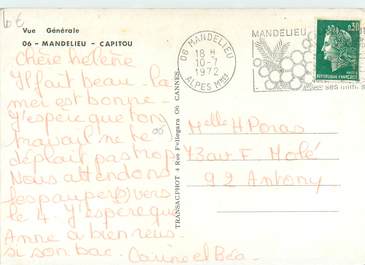 6 €
Vue Générale
06 - MANDELIEU - CAPITOU
chère hélène
Il fait beau. la
mer est bonne.
J'espère que ton
travail ne te
déplait pas trop.
Nous attendons
les pauper(s) vers
le 4. J'espère que
Anne a bien réus-
si son bac.
Carine et Béa.
TRANSACPHOT 4 Rue Pellegara 06 CANNES
06 MANDELIEU
18 H
10-7
1972
ALPES MMES
MANDELIEU
ses
0,30
REPUBLIQUE FRANÇAISE
Melle H Poras
73 av F. Molé
92 Antony